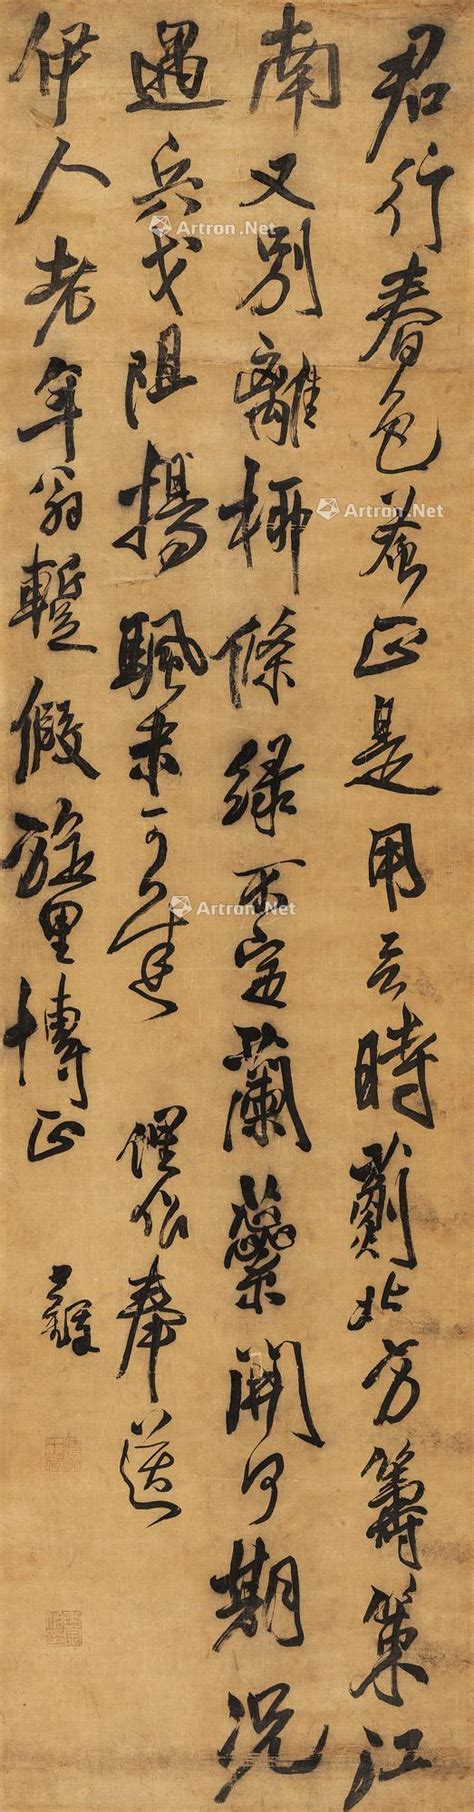 君行春色蚤正是用言時薊北方籌策江
南又別離柳條綠不定蘭蘂開何期況
遇兵戈阻揚颿未可遲 俚作奉送
伊人老年翁蹔假旋里博正
Artron.Net
Artron.Net
Artron.Net